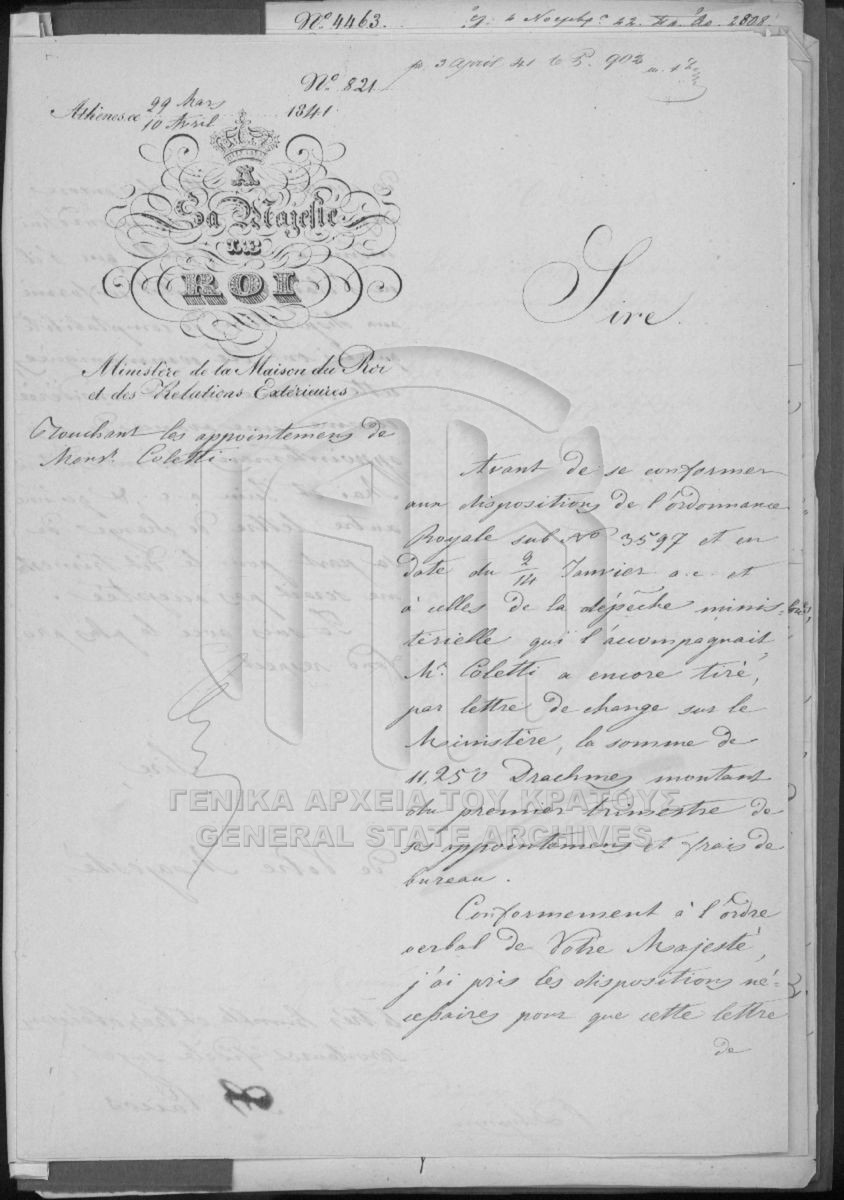 Nº 4463.
Nº 821
p. 3 April 41
Athènes ce 29 Mars / 10 Avril 1841.
A
Sa Majesté
LE
ROI
Sire.
Ministère de la Maison du Roi
et des Relations Extérieures
Touchant les appointemens de
Monsr. Coletti.
Avant de se conformer
aux dispositions de l'ordonnance
Royale sub Nº 3597 et en
date du 2/14 Janvier a.c. et
à celles de la dépêche minis-
térielle qui l'accompagnait,
Mr. Coletti a encore tiré,
par lettre de change sur le
Ministère, la somme de
11,250 Drachmes montant
du premier trimestre de
ses appointemens et frais de
bureau.
Conformement à l'ordre
verbal de Votre Majesté,
j'ai pris les dispositions né-
cessaires pour que cette lettre
de
ΓΕΝΙΚΑ ΑΡΧΕΙΑ ΤΟΥ ΚΡΑΤΟΥΣ
GENERAL STATE ARCHIVES